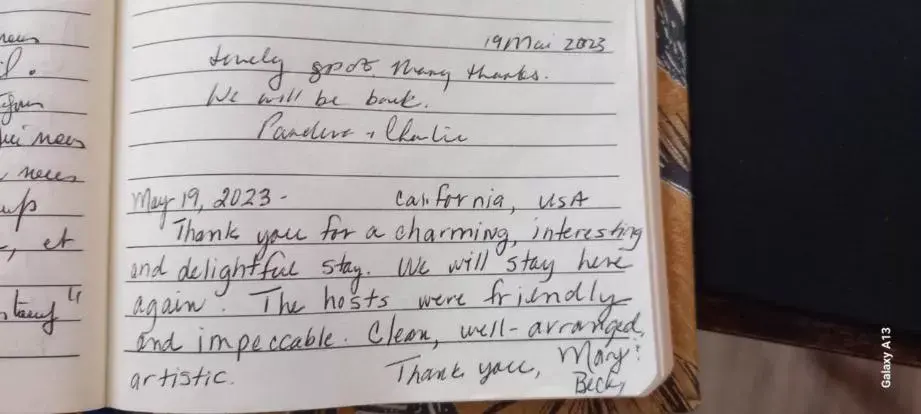 19 Mai 2023
Lovely spot. Many thanks.
We will be back.
Pandora + Charlie
May 19, 2023 - California, USA
Thank you for a charming, interesting
and delightful stay. We will stay here
again. The hosts were friendly
and impeccable. Clean, well-arranged,
artistic. Thank you, Mary &
Becky
et
Galaxy A13